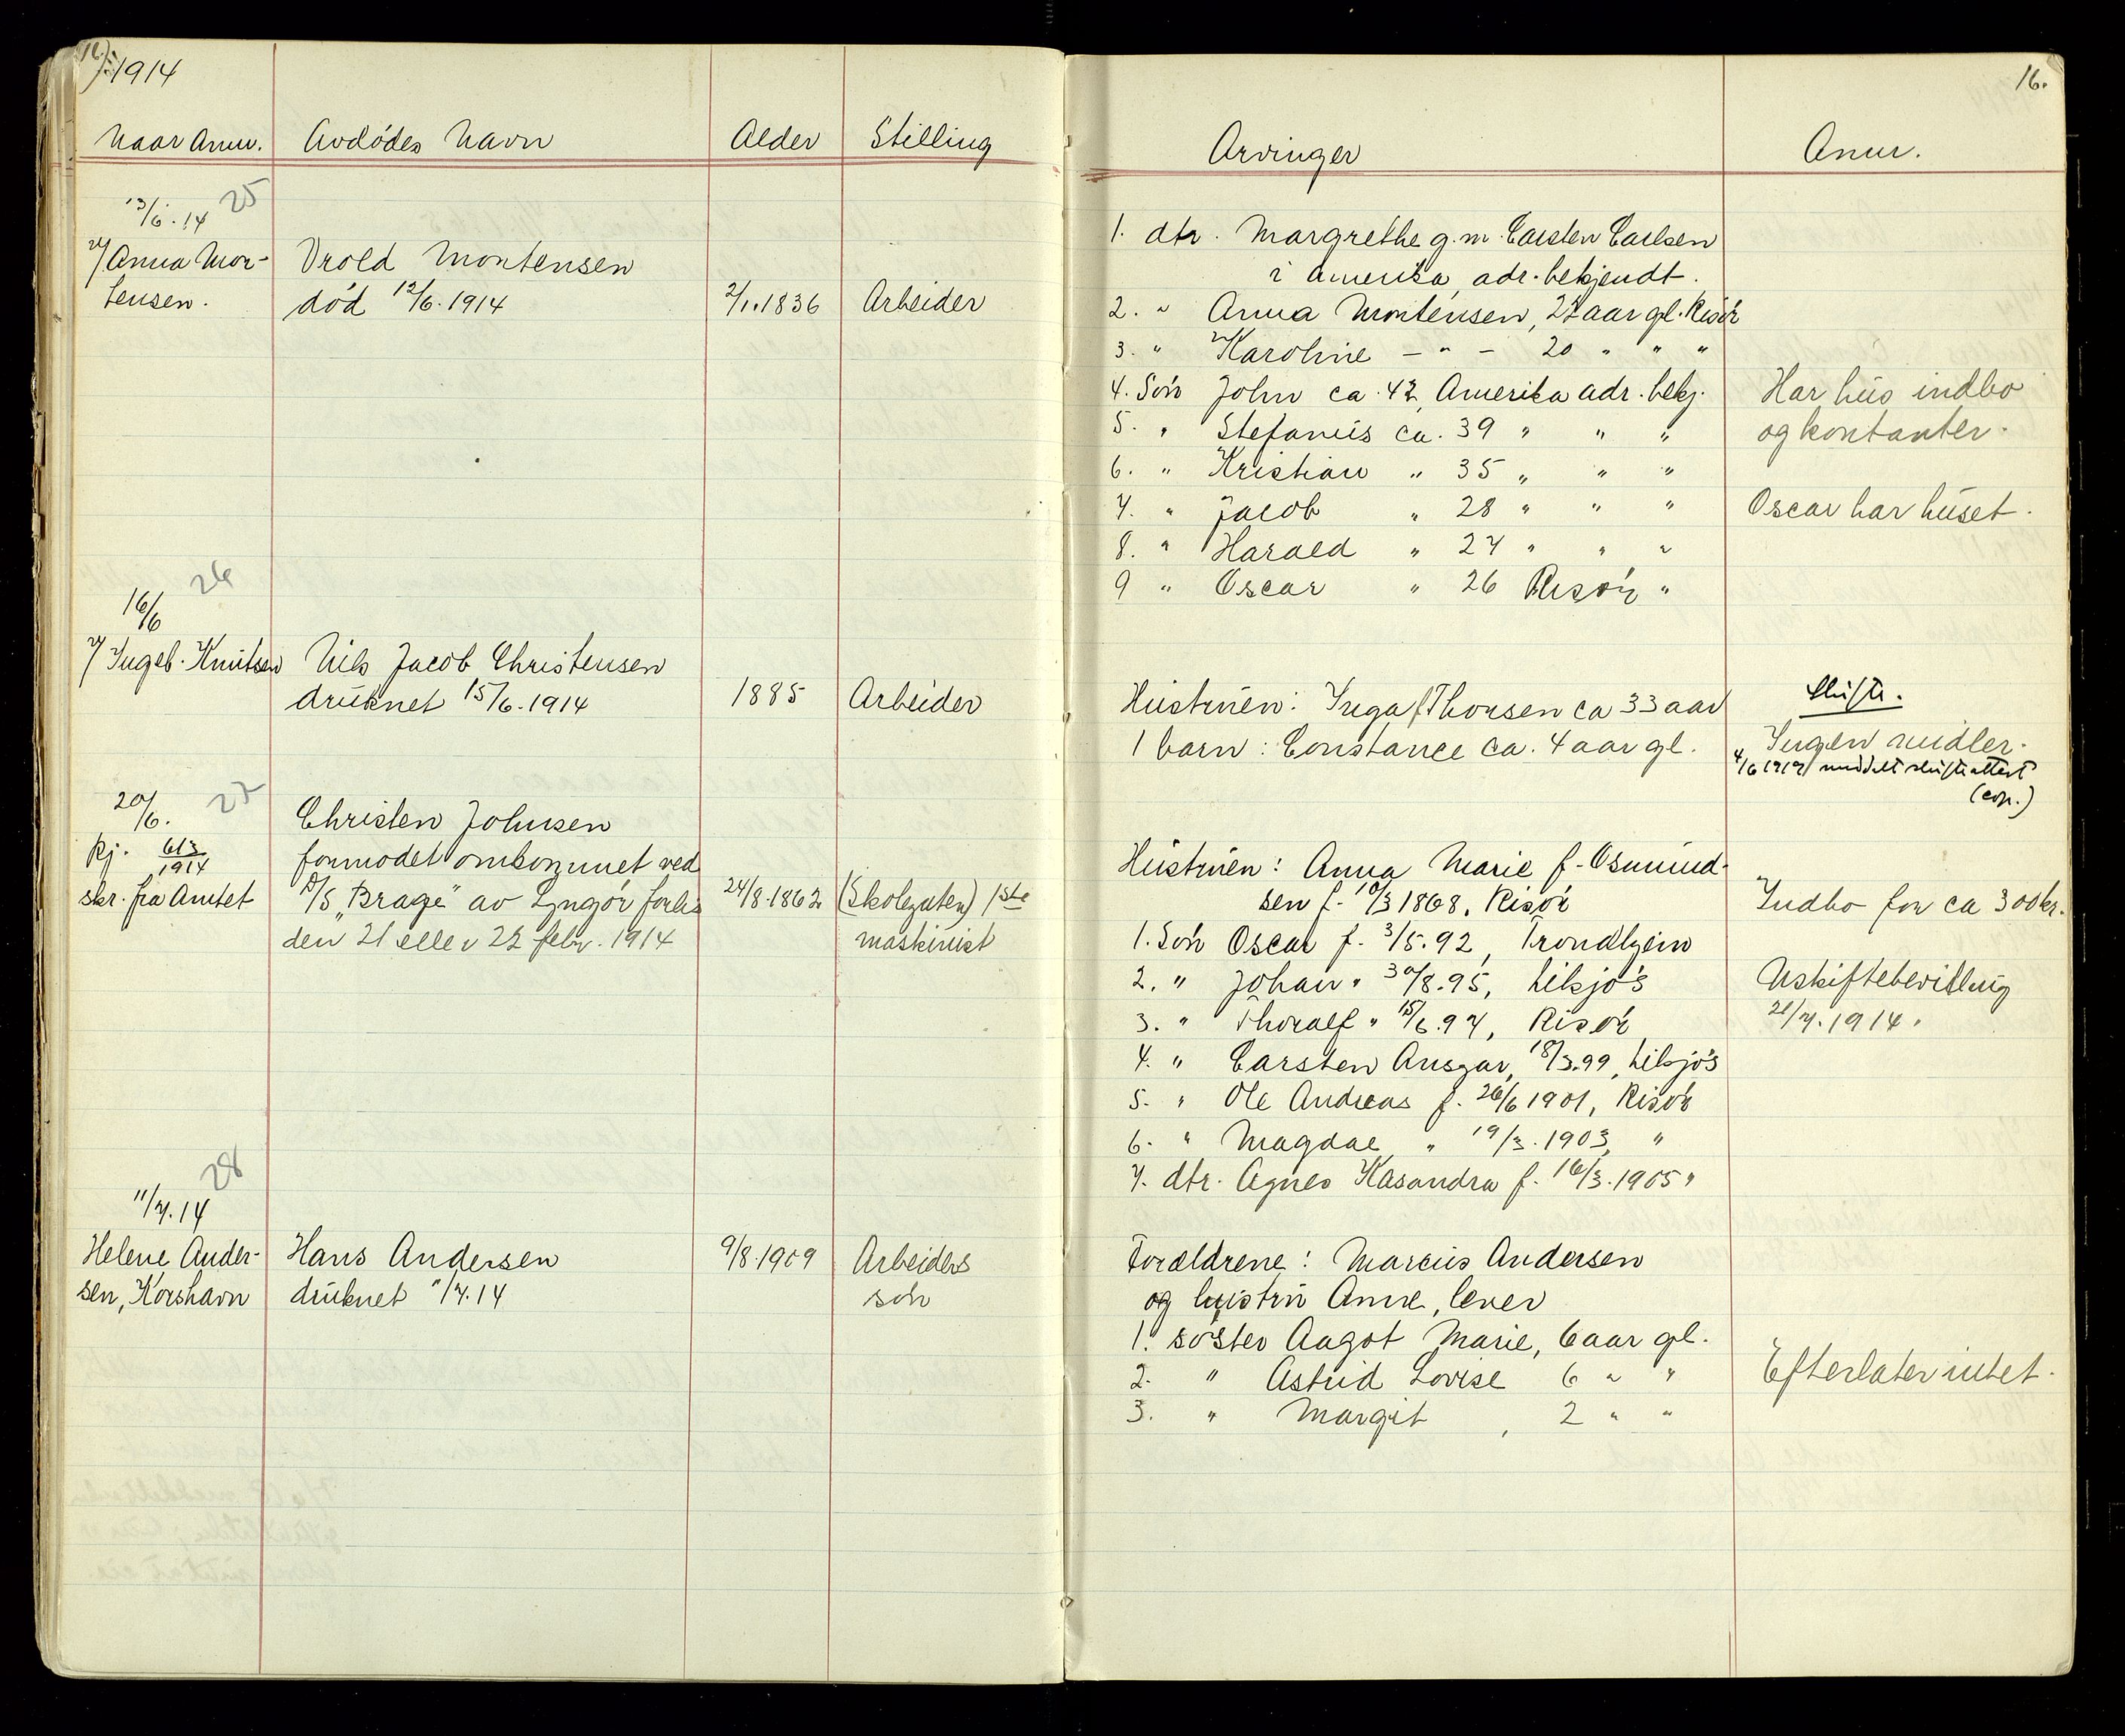 1914
16.
Naar Anm.
Avdödes Navn
Alder
Stilling
Arvinger
Anm.
13/6.14 25
v/ Anna Mor-
tensen.
Vrold Mortensen
död 12/6.1914
2/1.1836
Arbeider
1. dtr. Margrethe g.m. Carsten Carlsen
i Amerika, adr. bekjendt.
2. " Anna Mortensen, aar gl. Risör
3. " Karoline - " - 20 " " "
4. Sön John ca. 42 Amerika adr. bekj.
5. " Stefanus ca. 39 " " "
6. " Kristian " 35 " " "
7. " Jacob " 28 " " "
8. " Harald " 27 " " "
9 " Oscar " 26 Risör "
Har hus indbo
og kontanter.
Oscar har huset.
16/6 26
v/ Ingeb. Knutsen
Nils Jacob Christensen
druknet 15/6.1914
1885
Arbeider
Hustruen: Inga f. Thorsen ca 33 aar
1 barn: Constance ca. 4 aar gl.
Skifte.
Ingen midler.
4/6 1919 meddelt skifteattest
(cop.)
20/6. 27
kj. 613/1914
skr. fra Amtet
Christen Johnsen
formodet omkommet ved
D/S "Brage" av Lyngör forlis
den 21 eller 22 febr. 1914
24/8.1862
(Skolegaten) 1ste
maskinist
Hustruen: Anna Marie f. Osmund-
sen f. 10/3 1868, Risör
1. Sön Oscar f. 3/5.92, Trondhjem
2. " Johan " 30/8.95, tilsjös
3. " Thoralf " 15/6.97, Risör
4. " Carsten Ansgar, 18/3.99, tilsjös
5. " Ole Andreas f. 26/6 1901, Risör
6. " Magdal " 19/3.1903, "
7. dtr. Agnes Kasandra f. 16/3.1905 "
Indbo for ca 300 kr.
Uskiftebevilling
21/7.1914.
11/7.14 28
Helene Ander-
sen, Korshavn
Hans Andersen
druknet 11/7.14
9/8.1909
Arbeiders
sön
Forældrene: Marcus Andersen
og hustru Anne, lever
1. söster Aagot Marie, 6 aar gl.
2. " Astrid Lovise 6 " "
3. " Margit, 2 " "
Efterlater intet.